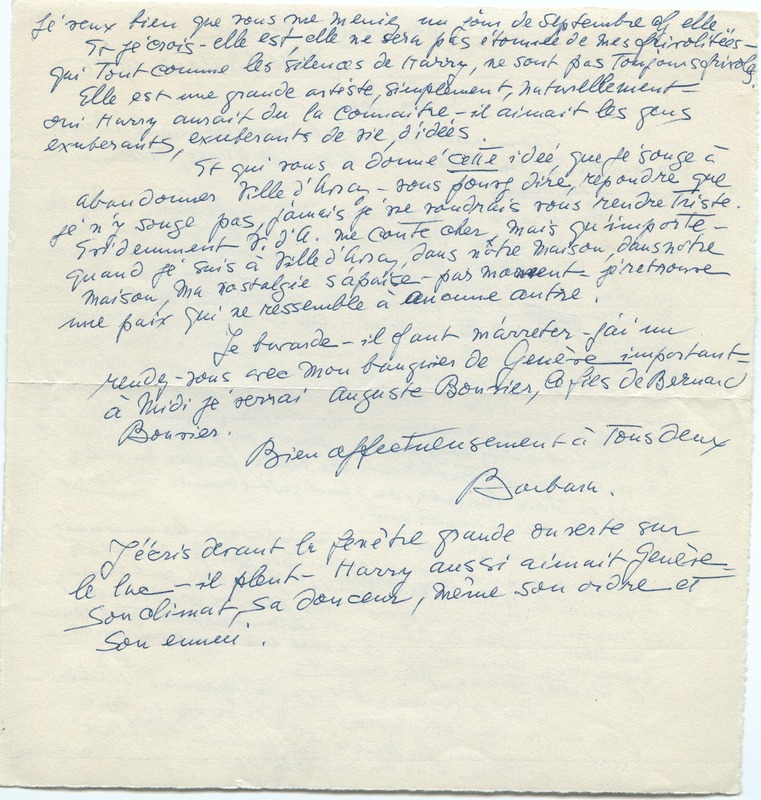 Je veux bien que vous me meniez un jour de Septembre chez elle
Et je crois - elle est, elle ne sera pas étonnée de mes frivolitées -
qui Tout comme les silences de Harry, ne sont pas Toujours frivoles.
Elle est une grande artiste, simplement, naturellement -
oui Harry aurait du la Connaitre - il aimait les gens
exuberants, exuberants de vie, d'idées.
Et qui vous a donné cette idée que je songe à
abandonner Ville d'Avray - vous pouvez dire, répondre que
je n'y songe pas, jamais je ne voudrais vous rendre Triste.
Evidemment V. d'A. me coute cher, mais qu'importe -
quand je suis à Ville d'Avray, dans nôtre maison, dans nôtre
maison, ma nostalgie s'apaise - par moment je retrouve
une paix qui ne ressemble à aucune autre.
Je bavarde - il faut m'arreter - j'ai un
rendez-vous avec mon banquier de Genève important -
à Midi je verrai Auguste Bouvier, le fils de Bernard
Bouvier.
Bien affectueusement à Tous deux
Barbara.
J'écris devant la fenêtre grande ouverte sur
le lac - il pleut - Harry aussi aimait Genève -
Son climat, sa douceur, même son ordre et
Son ennui.